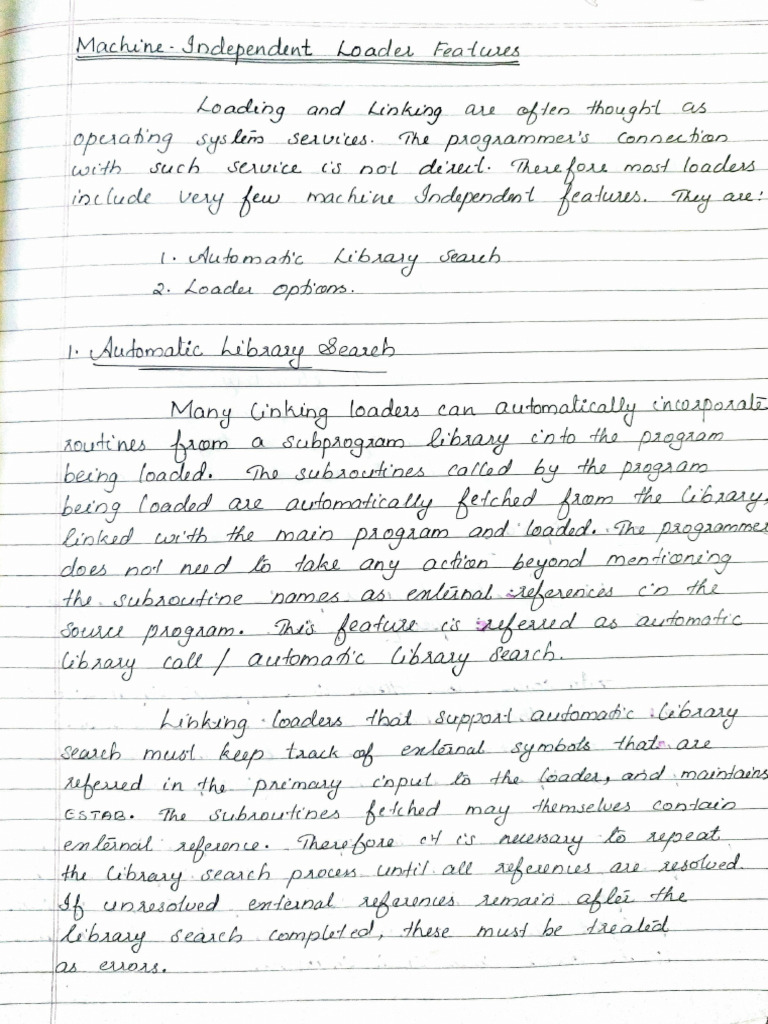 Machine-Independent Loader Features
Loading and Linking are often thought as
operating system services. The programmer's connection
with such service is not direct. Therefore most loaders
include very few machine Independent features. They are:
1. Automatic Library Search
2. Loader Options.
1. Automatic Library Search
Many linking loaders can automatically incorporate
routines from a subprogram library into the program
being loaded. The subroutines called by the program
being loaded are automatically fetched from the library,
linked with the main program and loaded. The programmer
does not need to take any action beyond mentioning
the subroutine names as external references in the
source program. This feature is referred as automatic
library call / automatic library search.
Linking loaders that support automatic library
search must keep track of external symbols that are
referred in the primary input to the loader, and maintains
ESTAB. The subroutines fetched may themselves contain
external reference. Therefore it is necessary to repeat
the library search process until all references are resolved.
If unresolved external references remain after the
library search completed, these must be treated
as errors.